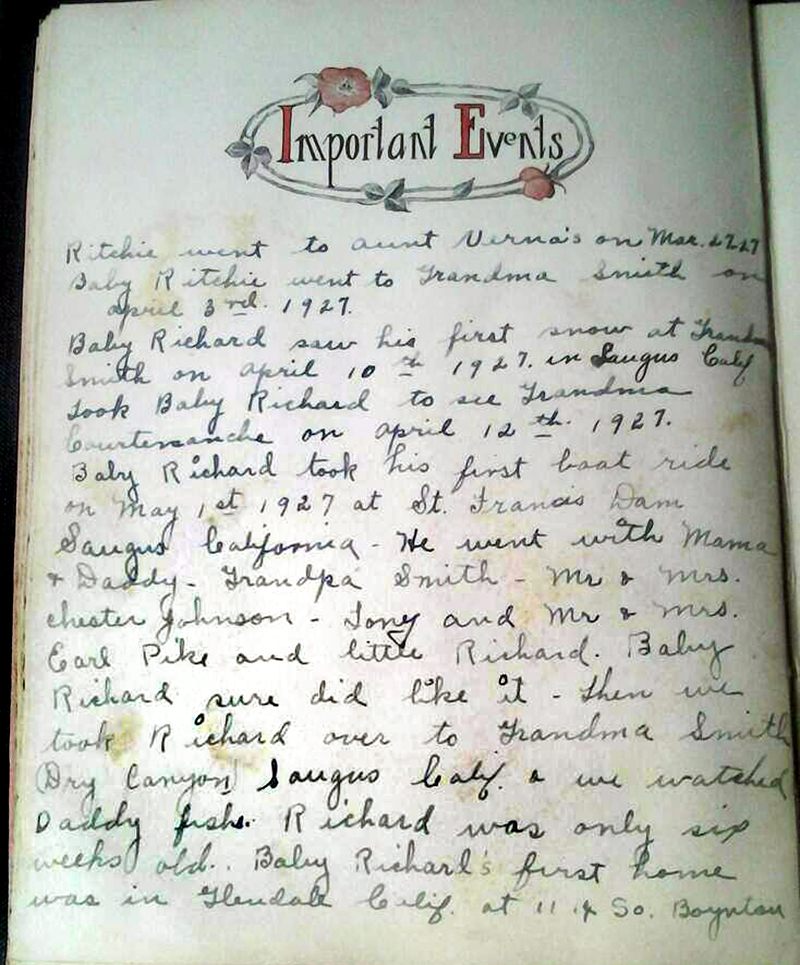 Important Events
Ritchie went to aunt Verna's on Mar. 27. 27
Baby Ritchie went to Grandma Smith on
april 3rd. 1927.
Baby Richard saw his first snow at Grandma
Smith on april 10th 1927. in Saugus Calif
Took Baby Richard to see Grandma
Courtemanche on april 12th. 1927.
Baby Richard took his first boat ride
on May 1st 1927 at St. Francis Dam
Saugus California - He went with Mama
& Daddy - Grandpa Smith - Mr & Mrs.
chester Johnson - Tony and Mr & Mrs.
Earl Pike and little Richard. Baby
Richard sure did like it - Then we
took Richard over to Grandma Smith
(Dry Canyon) Saugus Calif. & we watched
Daddy fish. Richard was only six
weeks old. Baby Richard's first home
was in Glendale Calif. at So. Boynton